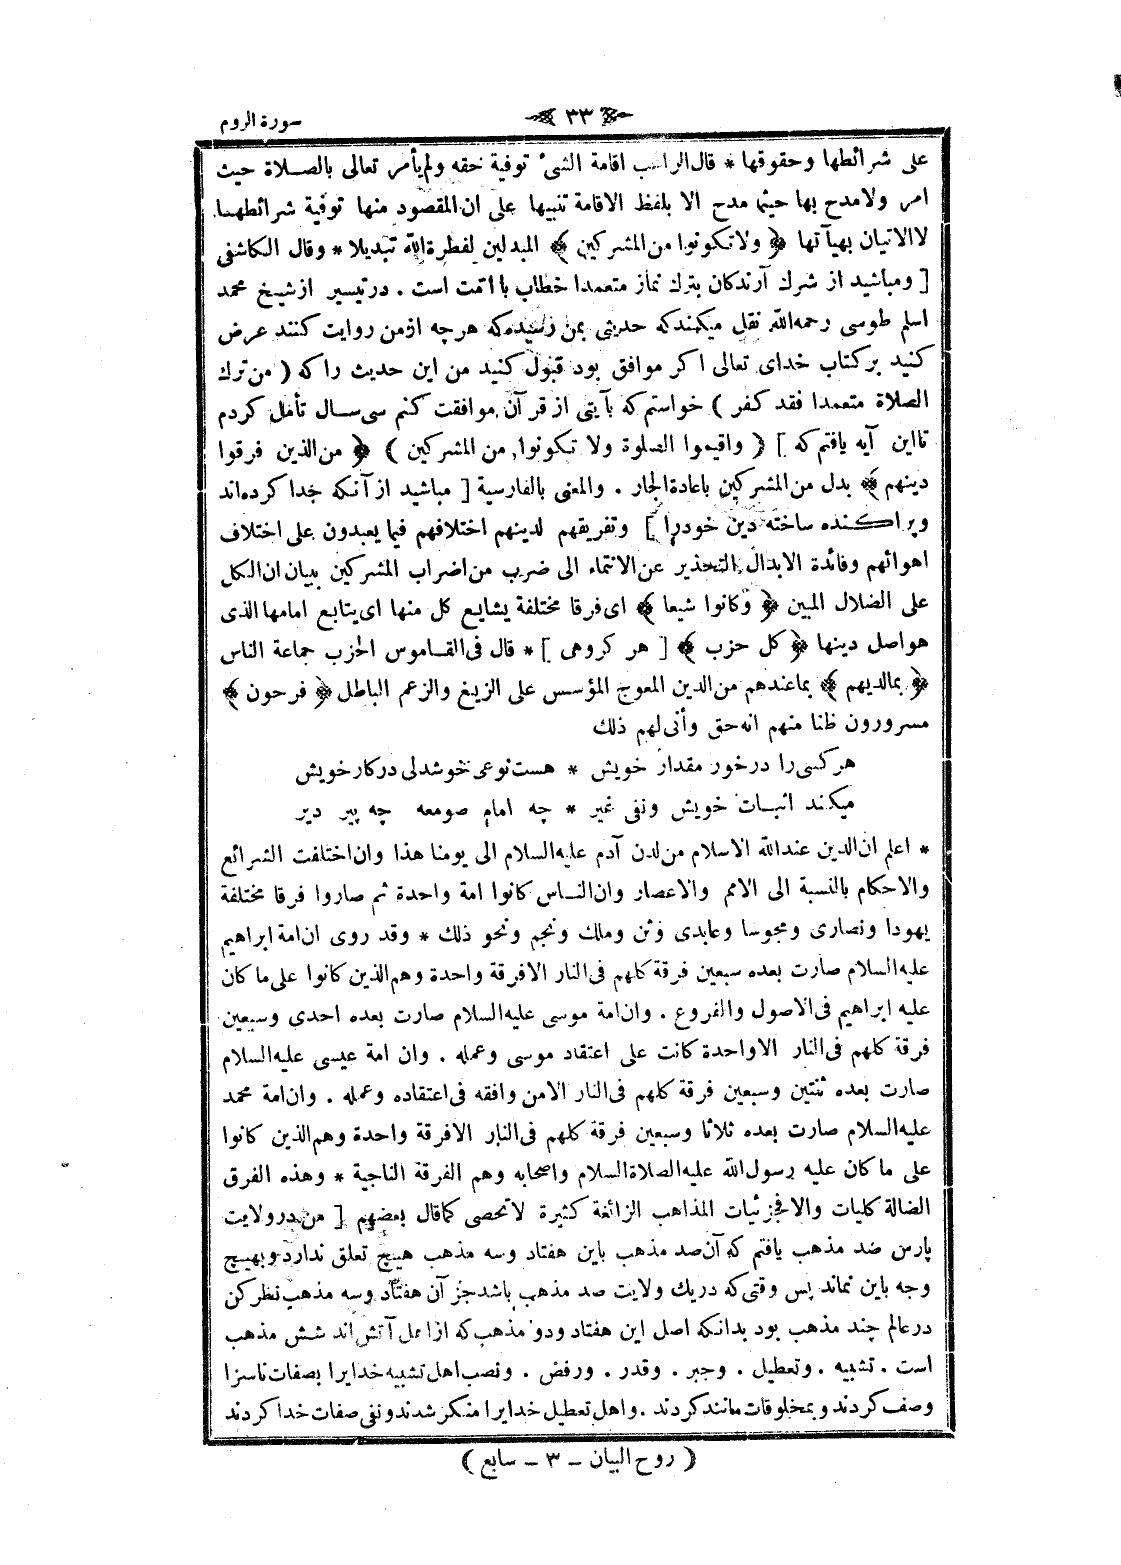 سورة الروم
٣٣
على شرائطها وحقوقها * قال الراغب اقامة الشئ توفية حقه ولم يأمر تعالى بالصلاة حيث
امر ولا مدح بها حيثما مدح الا بلفظ الاقامة تنبيها على ان المقصود منها توفية شرائطها
لا الاتيان بهيآتها ﴿ ولا تكونوا من المشركين ﴾ المبدلين لفطرة الله تبديلا * وقال الكاشفى
[ ومباشيد از شرك آرندكان بترك نماز متعمدا خطاب با امت است . درتيسير ازشيخ محمد
اسلم طوسى رحمه الله نقل ميكندكه حديثى بمن رسيده كه هرچه ازمن روايت كنند عرض
كنيد بركتاب خداى تعالى اكر موافق بود قبول كنيد من اين حديث راكه ( من ترك
الصلاة متعمدا فقد كفر ) خواستم كه بآيتى از قرآن موافقت كنم سى سال تأمل كردم
تا اين آيه يافتم كه ] ( واقيموا الصلوة ولا تكونوا من المشركين ) ﴿ من الذين فرقوا
دينهم ﴾ بدل من المشركين باعادة الجار . والمعنى بالفارسية [ مباشيد از آنكه جدا كرده اند
وپراكنده ساخته دين خودرا ] وتفريقهم لدينهم اختلافهم فيما يعبدون على اختلاف
اهوائهم وفائدة الابدال التحذير عن الانتماء الى ضرب من اضراب المشركين ببيان ان الكل
على الضلال المبين ﴿ وكانوا شيعا ﴾ اى فرقا مختلفة يشايع كل منها اى يتابع امامها الذى
هواصل دينها ﴿ كل حزب ﴾ [ هر كروهى ] * قال فى القاموس الحزب جماعة الناس
﴿ بما لديهم ﴾ بما عندهم من الدين المعوج المؤسس على الزيغ والزعم الباطل ﴿ فرحون ﴾
مسرورون ظنا منهم انه حق وأنى لهم ذلك
هركسى را درخور مقدار خويش * هست نوعى خوشدلى دركار خويش
ميكند اثبات خويش ونفى غير * چه امام صومعه چه پير دير
* اعلم ان الدين عندالله الاسلام من لدن آدم عليه السلام الى يومنا هذا وان اختلفت الشرائع
والاحكام بالنسبة الى الامم والاعصار وان الناس كانوا امة واحدة ثم صاروا فرقا مختلفة
يهودا ونصارى ومجوسا وعابدى وثن وملك ونجم ونحو ذلك * وقد روى ان امة ابراهيم
عليه السلام صارت بعده سبعين فرقة كلهم فى النار الا فرقة واحدة وهم الذين كانوا على ما كان
عليه ابراهيم فى الاصول والفروع . وان امة موسى عليه السلام صارت بعده احدى وسبعين
فرقة كلهم فى النار الا واحدة كانت على اعتقاد موسى وعمله . وان امة عيسى عليه السلام
صارت بعده ثنتين وسبعين فرقة كلهم فى النار الا من وافقه فى اعتقاده وعمله . وان امة محمد
عليه السلام صارت بعده ثلاثا وسبعين فرقة كلهم فى النار الا فرقة واحدة وهم الذين كانوا
على ما كان عليه رسول الله عليه الصلاة السلام واصحابه وهم الفرقة الناجية * وهذه الفرق
الضالة كليات والا فجزئيات المذاهب الزائغة كثيرة لا تحصى كما قال بعضهم [ من درولايت
پارس ضد مذهب يافتم كه آن صد مذهب باين هفتاد وسه مذهب هيچ تعلق ندارد وبهيچ
وجه باين نماند پس وقتى كه دريك ولايت صد مذهب باشد جز آن هفتاد وسه مذهب نظركن
درعالم چند مذهب بود بدانكه اصل اين هفتاد ودو مذهب كه ازاهل آتش اند شش مذهب
است . تشبيه . وتعطيل . وجبر . وقدر . ورفض . ونصب اهل تشبيه خدايرا بصفات ناسزا
وصف كردند وبمخلوقات مانند كردند . واهل تعطيل خدايرا منكر شدند ونفى صفات خدا كردند
( روح البيان – ٣ – سابع )